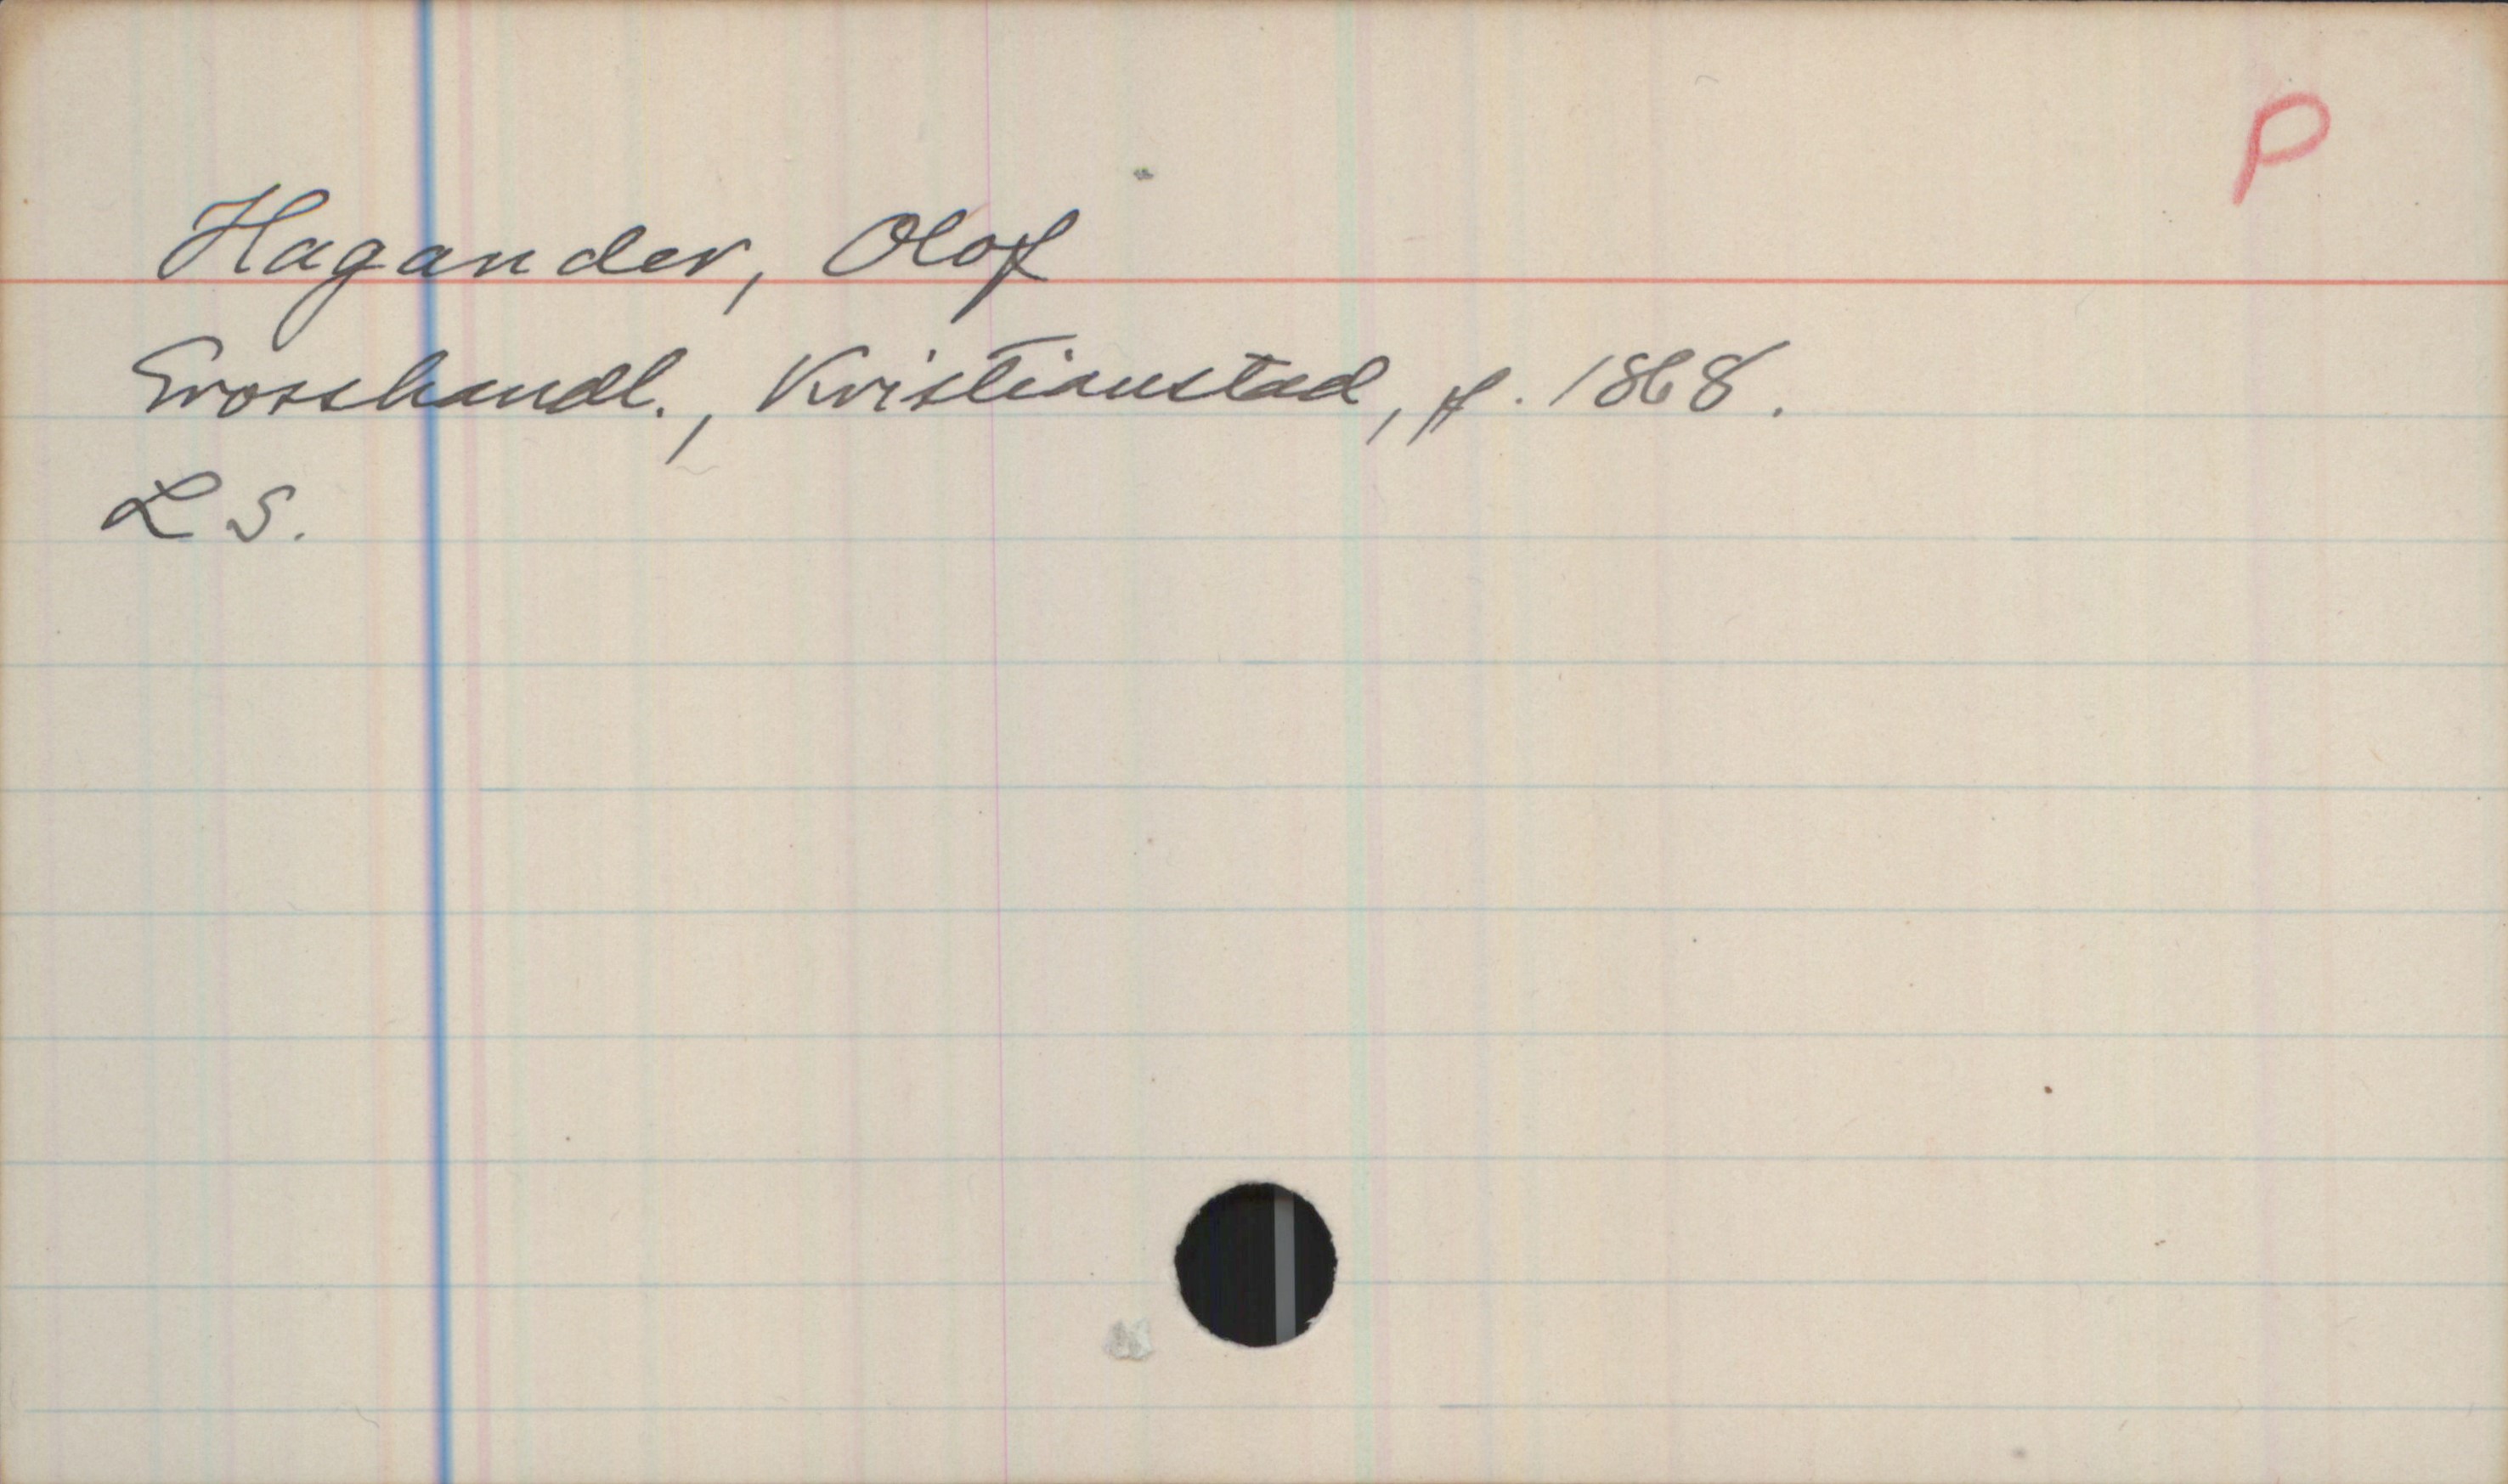 P
Hagander, Olof
Grosshandl., Kristianstad, f. 1868.
L S.